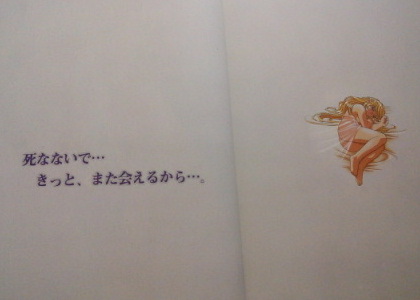 死なないで…
きっと、また会えるから…。